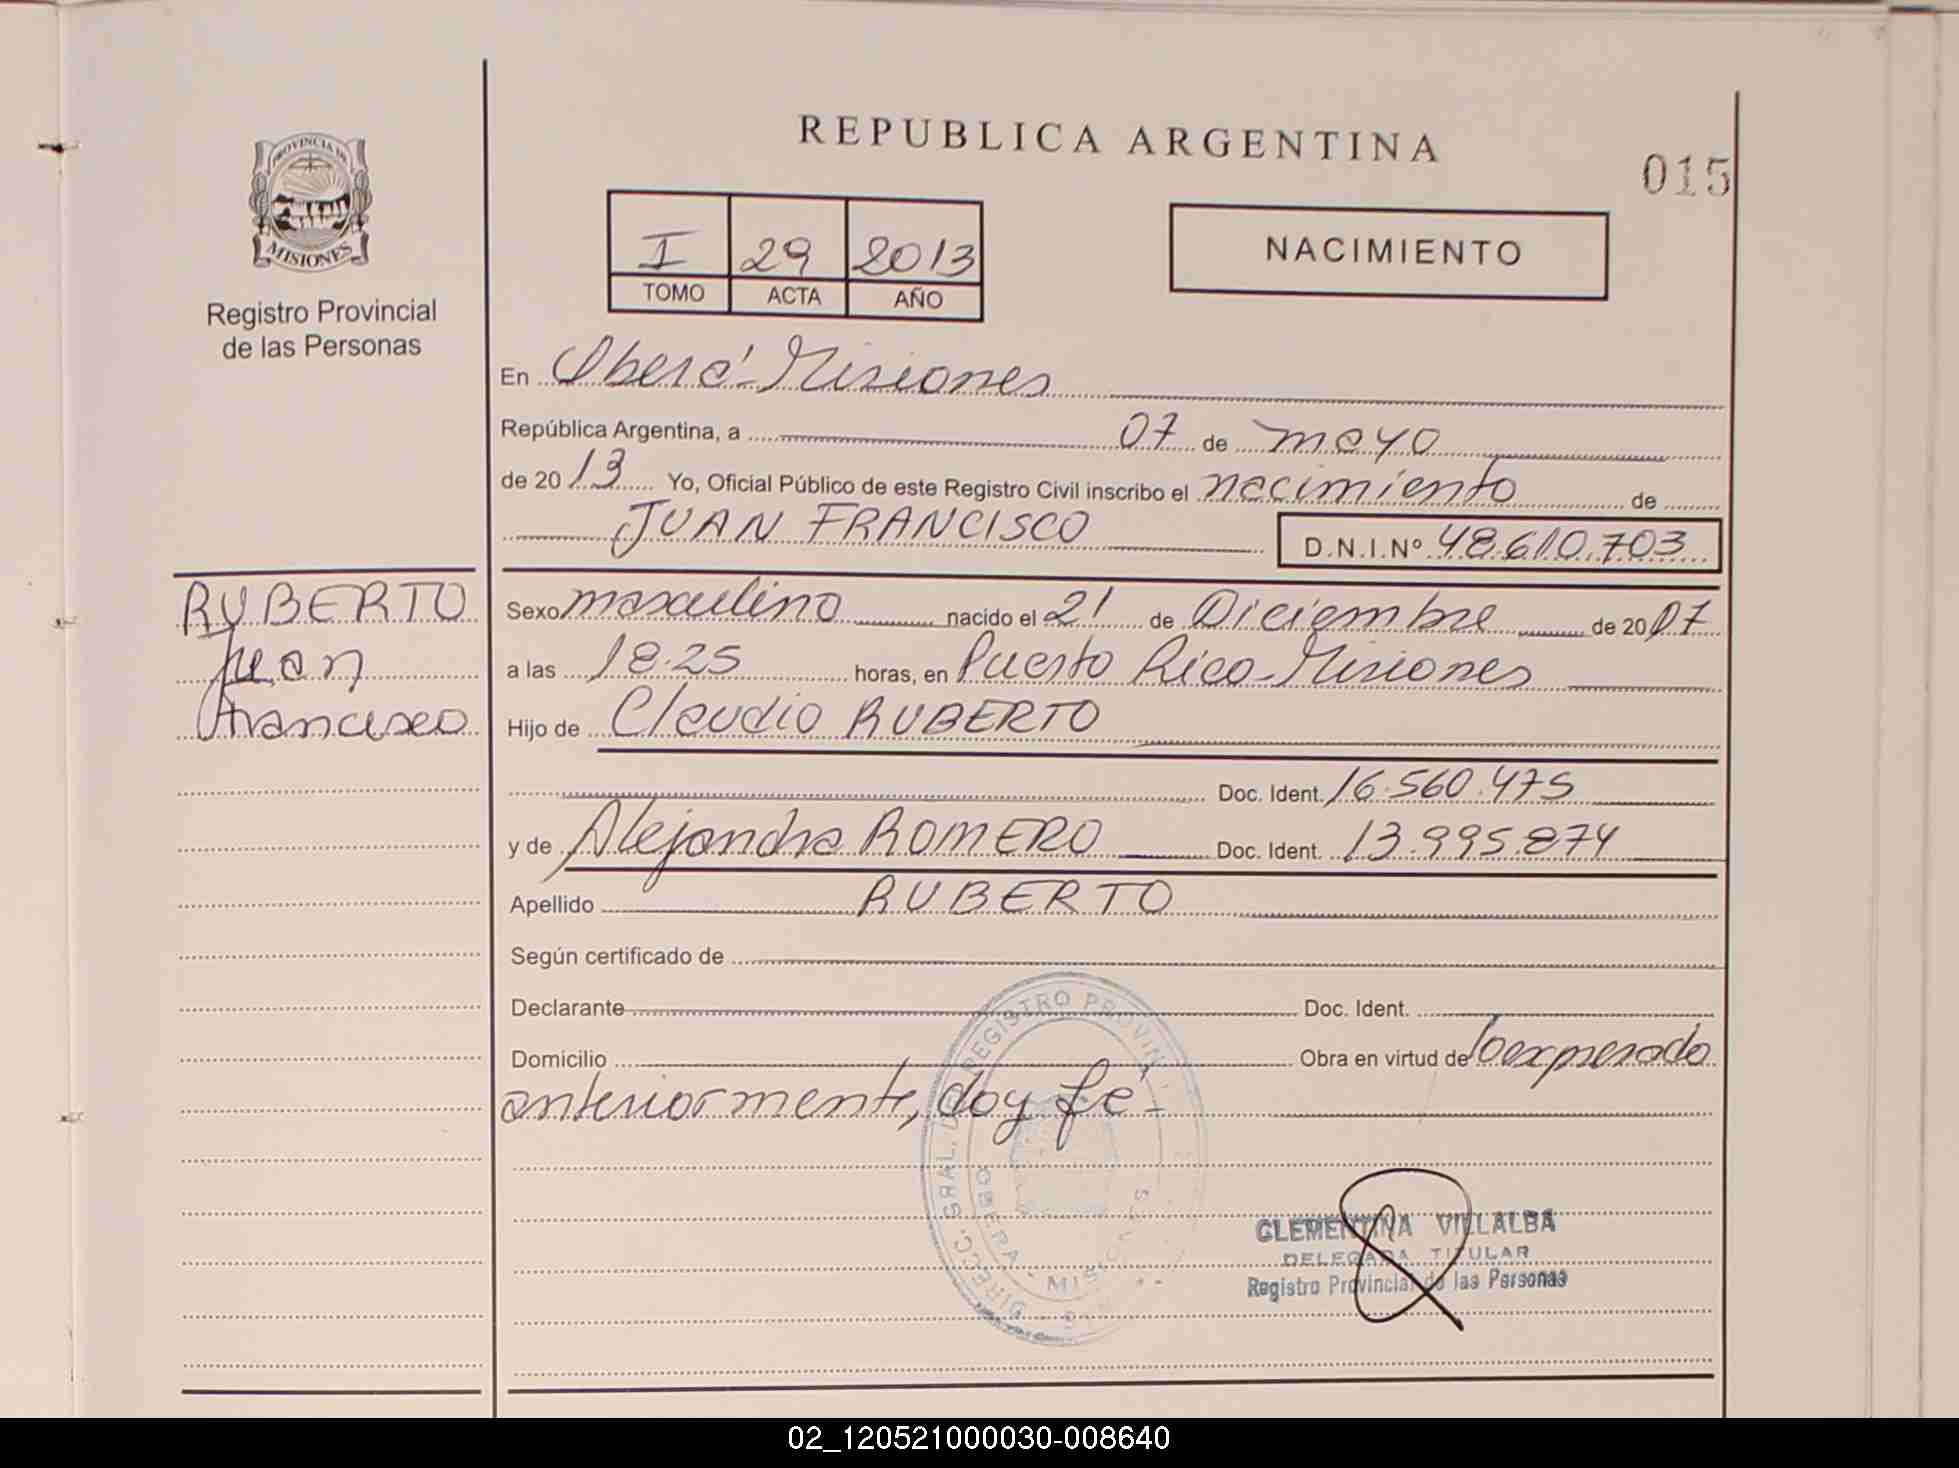 REPUBLICA ARGENTINA
015
PROVINCIA DE
MISIONES
Registro Provincial
de las Personas
I 29 2013
TOMO ACTA AÑO
NACIMIENTO
En Oberá-Misiones
República Argentina, a 07 de mayo
de 2013 Yo, Oficial Público de este Registro Civil inscribo el nacimiento de
JUAN FRANCISCO D.N.I.Nº 48.610.703
RUBERTO
Juan
Francisco
Sexo masculino nacido el 21 de Diciembre de 2007
a las 18.25 horas, en Puerto Rico-Misiones
Hijo de Claudio RUBERTO
Doc. Ident. 16.560.475
y de Alejandra ROMERO Doc. Ident. 13.995.874
Apellido RUBERTO
Según certificado de
Declarante Doc. Ident.
Domicilio Obra en virtud de lo expresado
anteriormente, doy fé-
DIRECC. GRAL. DEL REGISTRO PROVIN
OBERA - MISIONES
CLEMENTINA VILLALBA
DELEGADA TITULAR
Registro Provincial de las Personas
02_120521000030-008640